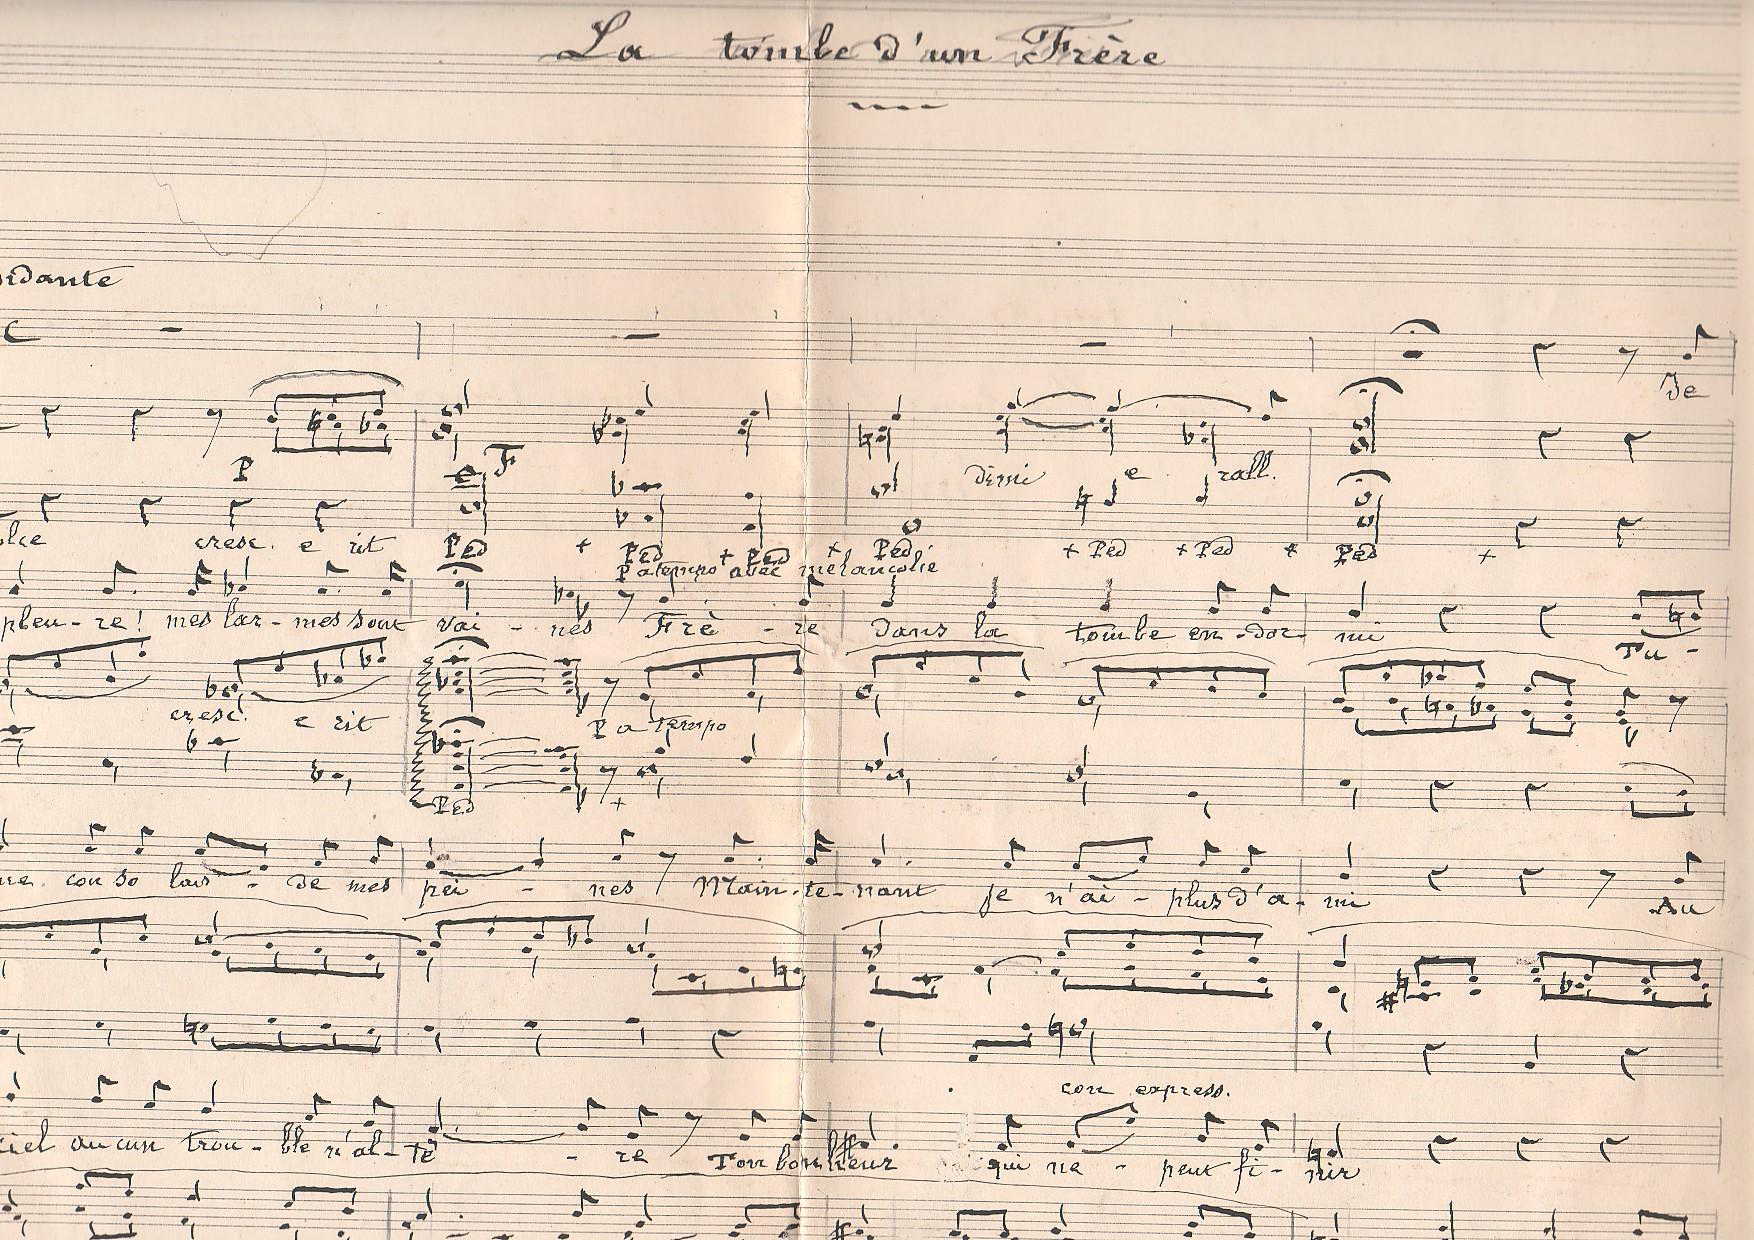 La tombe d'un Frère
Je
P
F
dimi e rall.
cresc. e rit
Ped + Ped + Ped + Ped + Ped + Ped + Ped +
P a tempo avec mélancolie
pleu - re! mes lar - mes sont vai - nes Frè - re dans la tombe en - dor - mi Tu -
cresc. e rit
P a tempo
Ped +
con so lais - de mes pei - nes Main - te - nant je n'ai - plus d'a - mi Au
con express.
ciel aucun trou - ble n'al - tè - re Ton bonheur qui ne - peut fi - nir